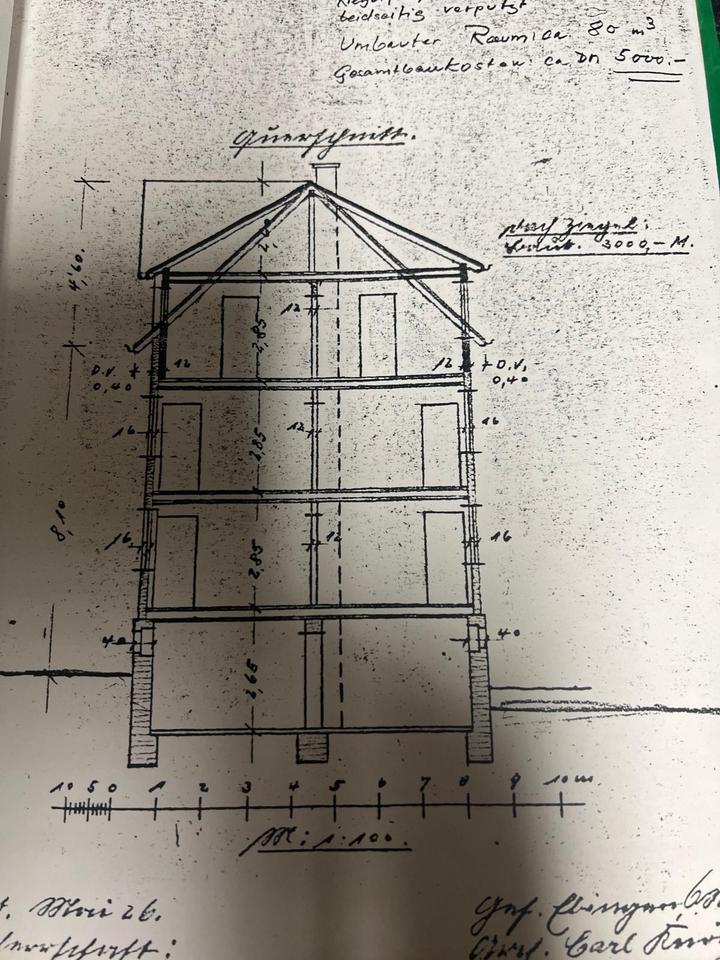 beidseitig verputzt
Umbauter Raum ca. 80 m³
Gesamtbaukosten ca DM 5000.-
Querschnitt.
Dach Ziegel:
3000,- M.
4,60.
2,85
12
D.V. 12
0,40
12 D.V.
0,40
16
12
16
2,85
8,10
16
12
16
2,85
40
40
2,65
10 5 0 1 2 3 4 5 6 7 8 9 10 m
M: 1:100.
Mai 26.
Gef. Ebingen,
Carl